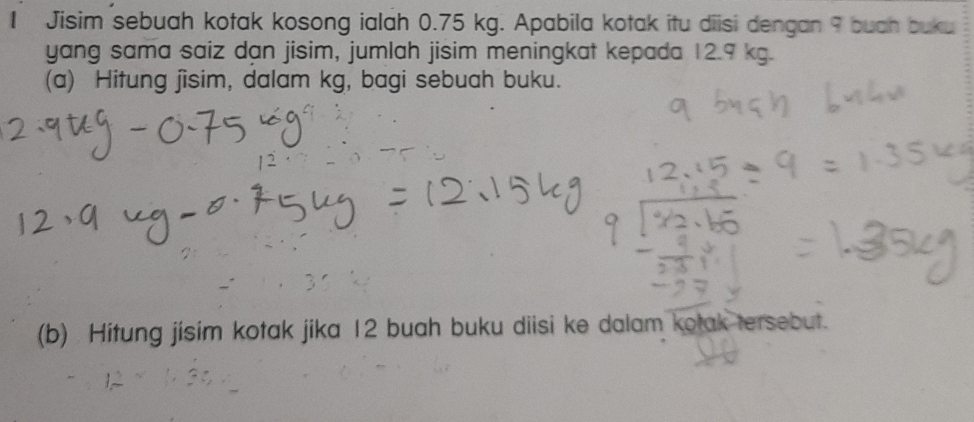 1 Jisim sebuah kotak kosong ialah 0.75 kg. Apabila kotak itu diisi dengan 9 buah buku
yang sama saiz dan jisim, jumlah jisim meningkat kepada 12.9 kg.
(a) Hitung jisim, dalam kg, bagi sebuah buku.
9 buah buku
2.9kg - 0.75 kg
12.15 ÷ 9 = 1.35kg
12.9 kg - 0.75kg = 12.15kg
9
= 1.35kg
(b) Hitung jisim kotak jika 12 buah buku diisi ke dalam kotak tersebut.